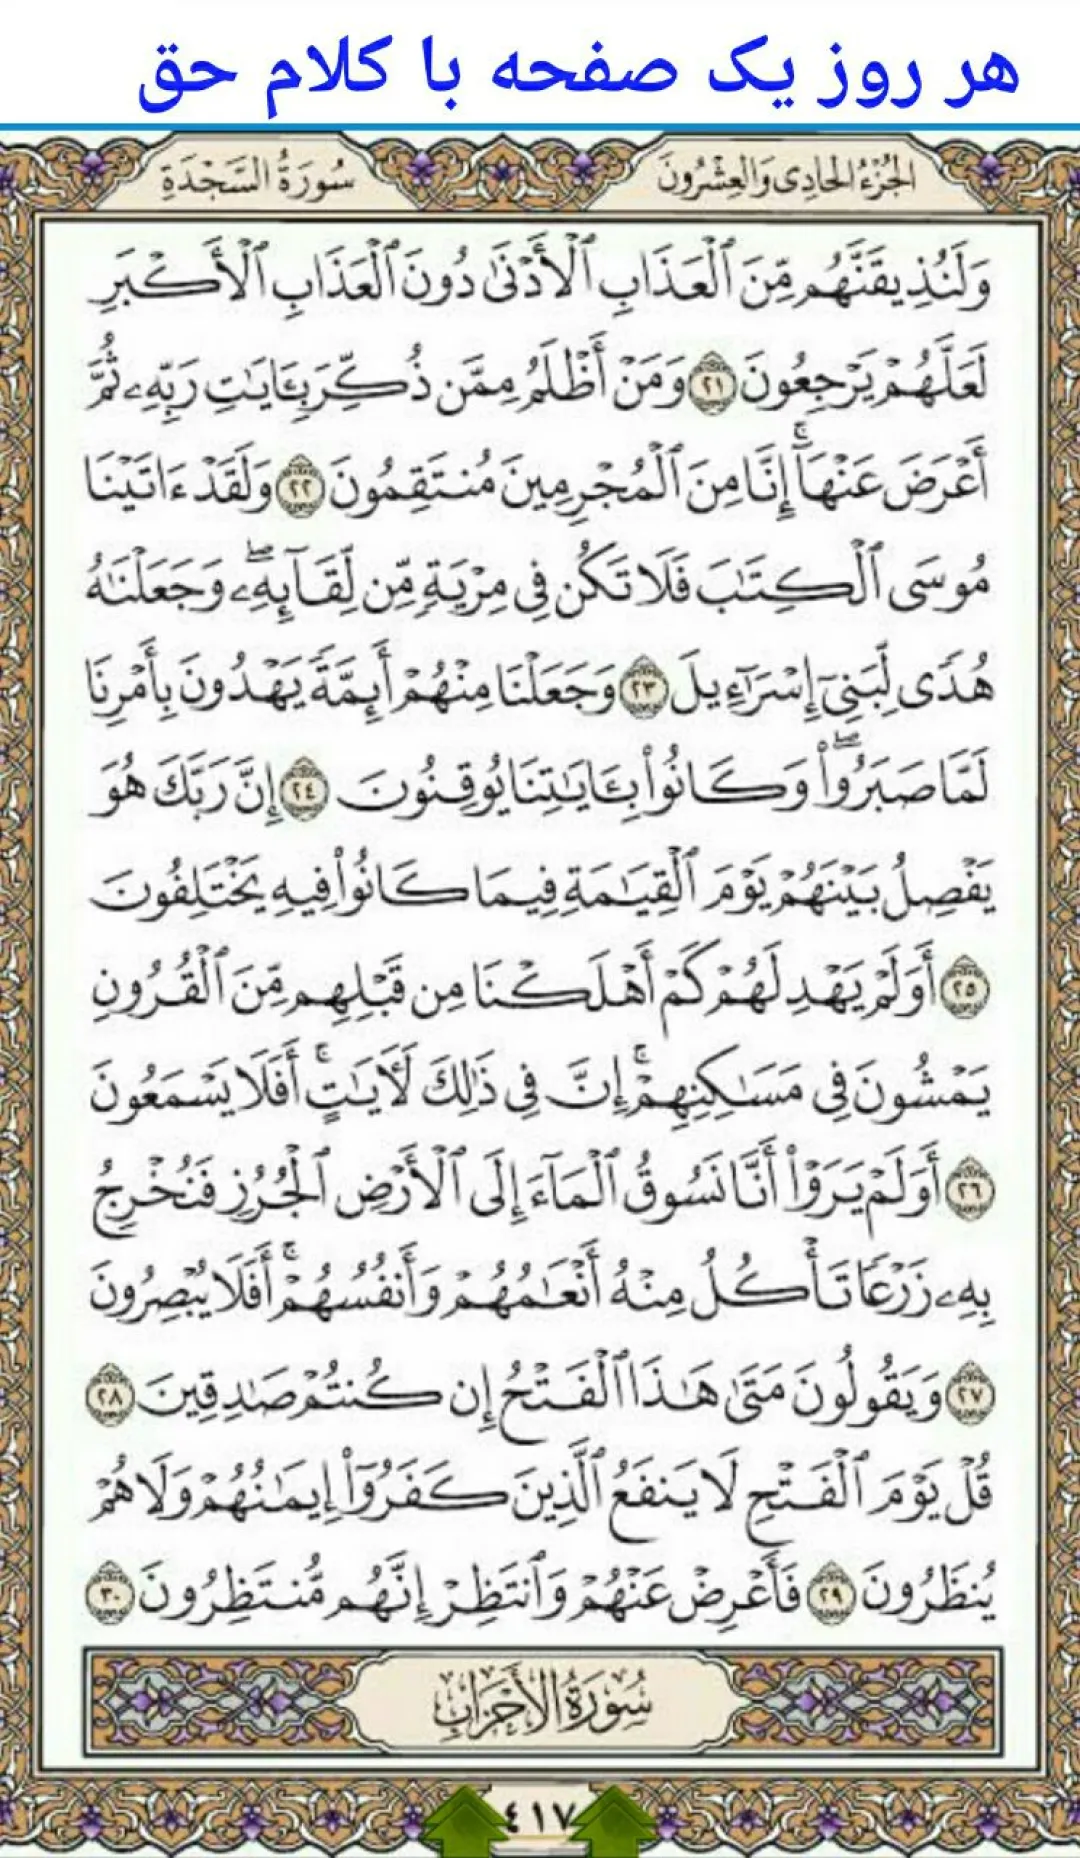 هر روز یک صفحه با کلام حق
الجُزْءُ الحَادِي وَالعِشْرُونَ
سُورَةُ السَّجْدَةِ
وَلَنُذِيقَنَّهُم مِّنَ ٱلْعَذَابِ ٱلْأَدْنَىٰ دُونَ ٱلْعَذَابِ ٱلْأَكْبَرِ
لَعَلَّهُمْ يَرْجِعُونَ ٢١ وَمَنْ أَظْلَمُ مِمَّن ذُكِّرَ بِـَٔايَـٰتِ رَبِّهِۦ ثُمَّ
أَعْرَضَ عَنْهَآ ۚ إِنَّا مِنَ ٱلْمُجْرِمِينَ مُنتَقِمُونَ ٢٢ وَلَقَدْ ءَاتَيْنَا
مُوسَى ٱلْكِتَـٰبَ فَلَا تَكُن فِى مِرْيَةٍ مِّن لِّقَآئِهِۦ ۖ وَجَعَلْنَـٰهُ
هُدًى لِّبَنِىٓ إِسْرَٰٓءِيلَ ٢٣ وَجَعَلْنَا مِنْهُمْ أَئِمَّةً يَهْدُونَ بِأَمْرِنَا
لَمَّا صَبَرُوا۟ ۖ وَكَانُوا۟ بِـَٔايَـٰتِنَا يُوقِنُونَ ٢٤ إِنَّ رَبَّكَ هُوَ
يَفْصِلُ بَيْنَهُمْ يَوْمَ ٱلْقِيَـٰمَةِ فِيمَا كَانُوا۟ فِيهِ يَخْتَلِفُونَ
٢٥ أَوَلَمْ يَهْدِ لَهُمْ كَمْ أَهْلَكْنَا مِن قَبْلِهِم مِّنَ ٱلْقُرُونِ
يَمْشُونَ فِى مَسَـٰكِنِهِمْ ۚ إِنَّ فِى ذَٰلِكَ لَـَٔايَـٰتٍ ۚ أَفَلَا يَسْمَعُونَ
٢٦ أَوَلَمْ يَرَوْا۟ أَنَّا نَسُوقُ ٱلْمَآءَ إِلَى ٱلْأَرْضِ ٱلْجُرُزِ فَنُخْرِجُ
بِهِۦ زَرْعًا تَأْكُلُ مِنْهُ أَنْعَـٰمُهُمْ وَأَنفُسُهُمْ ۚ أَفَلَا يُبْصِرُونَ
٢٧ وَيَقُولُونَ مَتَىٰ هَـٰذَا ٱلْفَتْحُ إِن كُنتُمْ صَـٰدِقِينَ ٢٨
قُلْ يَوْمَ ٱلْفَتْحِ لَا يَنفَعُ ٱلَّذِينَ كَفَرُوٓا۟ إِيمَـٰنُهُمْ وَلَا هُمْ
يُنظَرُونَ ٢٩ فَأَعْرِضْ عَنْهُمْ وَٱنتَظِرْ إِنَّهُم مُّنتَظِرُونَ ٣٠
سُورَةُ الأَحْزَابِ
٤١٧